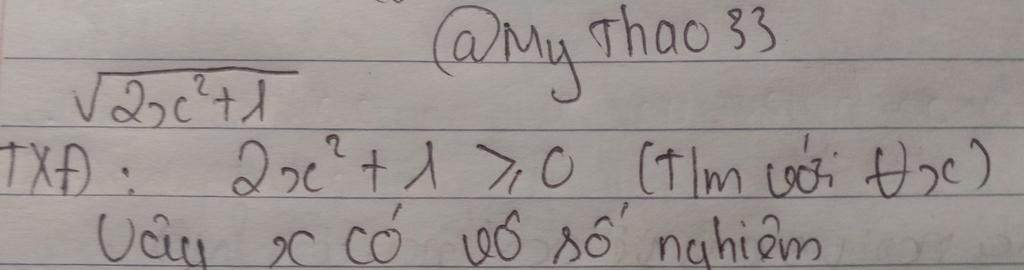 @My Thao 33
√2x²+1
TXĐ: 2x²+1 ⩾ 0 (T/m với ∀x)
Vậy x có vô số nghiệm